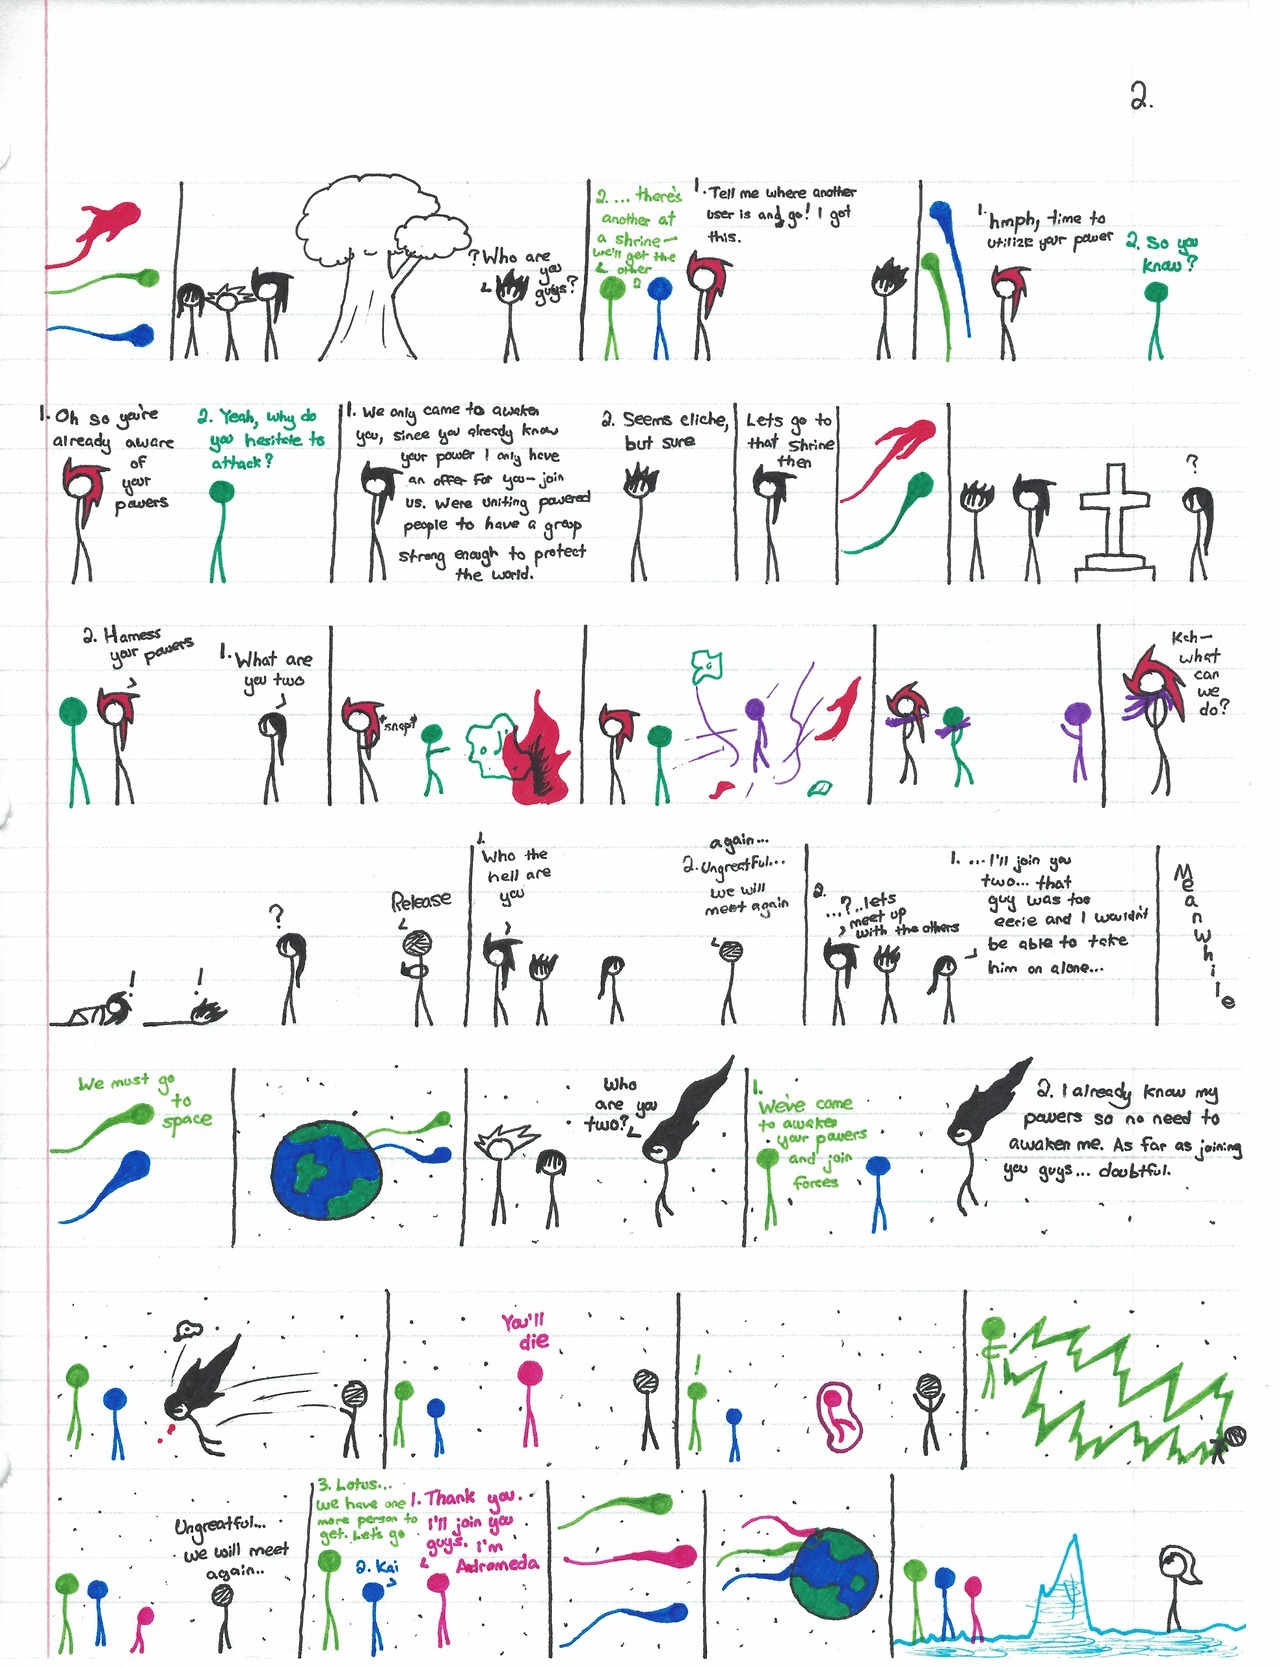 2.
? Who are
you
guys?
2. ... there's
another at
a shrine—
we'll get the
other
1. Tell me where another
user is and go! I got
this.
1. hmph, time to
utilize your power
2. So you
know?
1. Oh so you're
already aware
of
your
powers
2. Yeah, why do
you hesitate to
attack?
1. We only came to awaken
you, since you already know
your power I only have
an offer for you— join
us. Were uniting powered
people to have a group
strong enough to protect
the world.
2. Seems cliche,
but sure
Lets go to
that Shrine
then
?
2. Harness
your powers
1. What are
you two
*snap*
Kch—
what
can
we
do?
!
!
?
Release
1.
Who the
hell are
you
again...
2. Ungreatful...
we will
meet again
2.
...?..lets
meet up
with the others
1. ...I'll join you
two... that
guy was too
eerie and I wouldn't
be able to take
him on alone...
Meanwhile
We must go
to
space
Who
are you
two?
1.
We've come
to awaken
your powers
and join
forces
2. I already know my
powers so no need to
awaken me. As far as joining
you guys... doubtful.
You'll
die
!
Ungreatful...
we will meet
again..
3. Lotus...
we have one
more person to
get. Let's go
2. Kai
1. Thank you.
I'll join you
guys. I'm
Adromeda